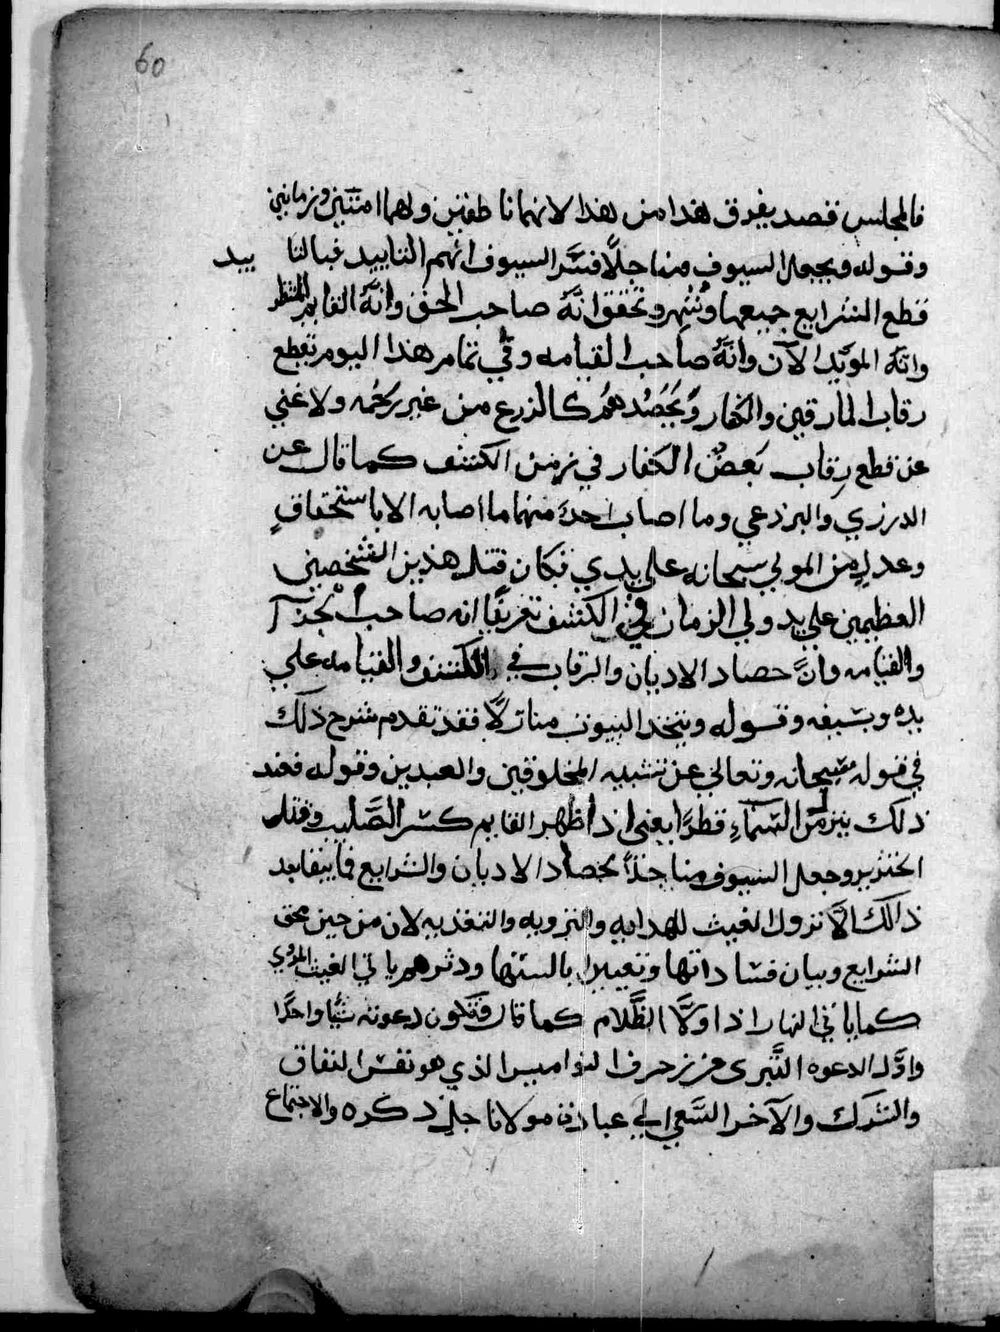 60
فالمجلس قصد يفرق هذا من هذا لانهما ناطقين ولهما امتين وزمانين
وقوله ويجعل السيوف مناجلًا فسَّر السيوف انهم التاييد فبالتا ييد
قطع الشرايع جميعها وشهر وتحقق انَّهُ صاحب الحق وانَّهُ القايم المنتظر
وانَّه المويَّد الآن وانَّهُ صاحب القيامه وفي تمام هذا اليوم تقطع
رقاب المارقين والكفار ويَحصُدهم كالزرع من غير رحمه ولا غني
عن قطع رقاب بَعض الكفار في زمن الكشف كما قال عن
الدرزي والبرذعي وما اصاب احدٌ منهما ما اصابه الا باستحقاقٍ
وعدلٍ من المولي سبحانه علي يدي فكان قتل هذين الشخصين
العظيمين علي يد ولي الزمان في الكشف تعريفًا انه صاحب الجزآ
والقيامه وانَّ حصاد الاديان والرقاب في الكشف والقيامه علي
يده وبسَيفه وقوله ويتخد البيوت منازلًا فقد تقدم شرح ذلك
في قوله سبحانه وتعالي عن تشبيه المخلوقين والعبدين وقوله فعند
ذلك ينزل من السَّمآءِ قطرًا يعني اذا ظهر القايم كسر الصَّليب وقتل
الخنزير وجعل السيوف مناجلًا لحصاد الاديان والشرايع فما يبقا بعد
ذالك الَّا نزول الغيث للهدايه والترويه والتغذيه لان من حين محق
الشرايع وبيان فسَاداتها وتعييبرا بالسنتها ودثرهم ياتي الغيث المروي
كما ياتي النهار اذا ولَّا الظَّلام كما قال فتكون دعوته شيًّا واحدًا
واوَّل الدعوه التَّبرى من زخرف النواميس الذي هو نفس النفاق
والشرك والآخر السَّعي الي عبادة مولانا جل ذكره والاجتماع